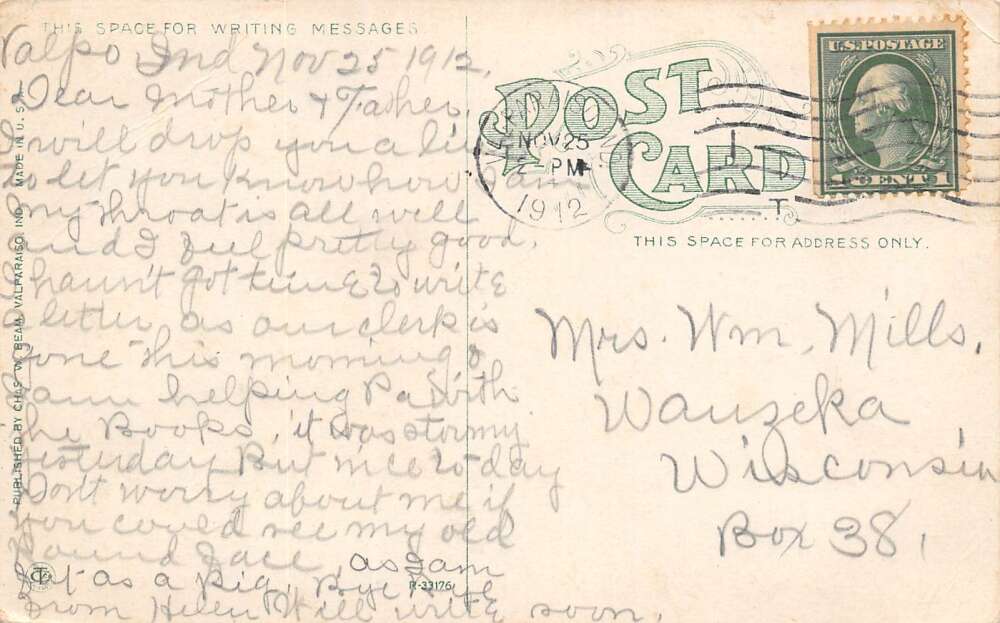 THIS SPACE FOR WRITING MESSAGES
Valpo Ind Nov 25 1912,
Dear Mother & Father,
I will drop you a line
to let you know how I am
my throat is all well
and I feel pretty good,
haun't got time to write
a letter as our clerk is
gone this morning &
I am helping Pa with
the Books, it was stormy
yesterday But nice to day
Don't worry about me if
you could see my old
round face, as I am
fat as a pig, Bye
from Helen Will write soon.
PUBLISHED BY CHAS. W. BEAM, VALPARAISO, IND. MADE IN U.S.A.
R-33176
POST CARD
NOV 25
PM
1912
U.S. POSTAGE
1 CENT 1
THIS SPACE FOR ADDRESS ONLY.
Mrs. Wm. Mills,
Wauzeka
Wisconsin
Box 38,